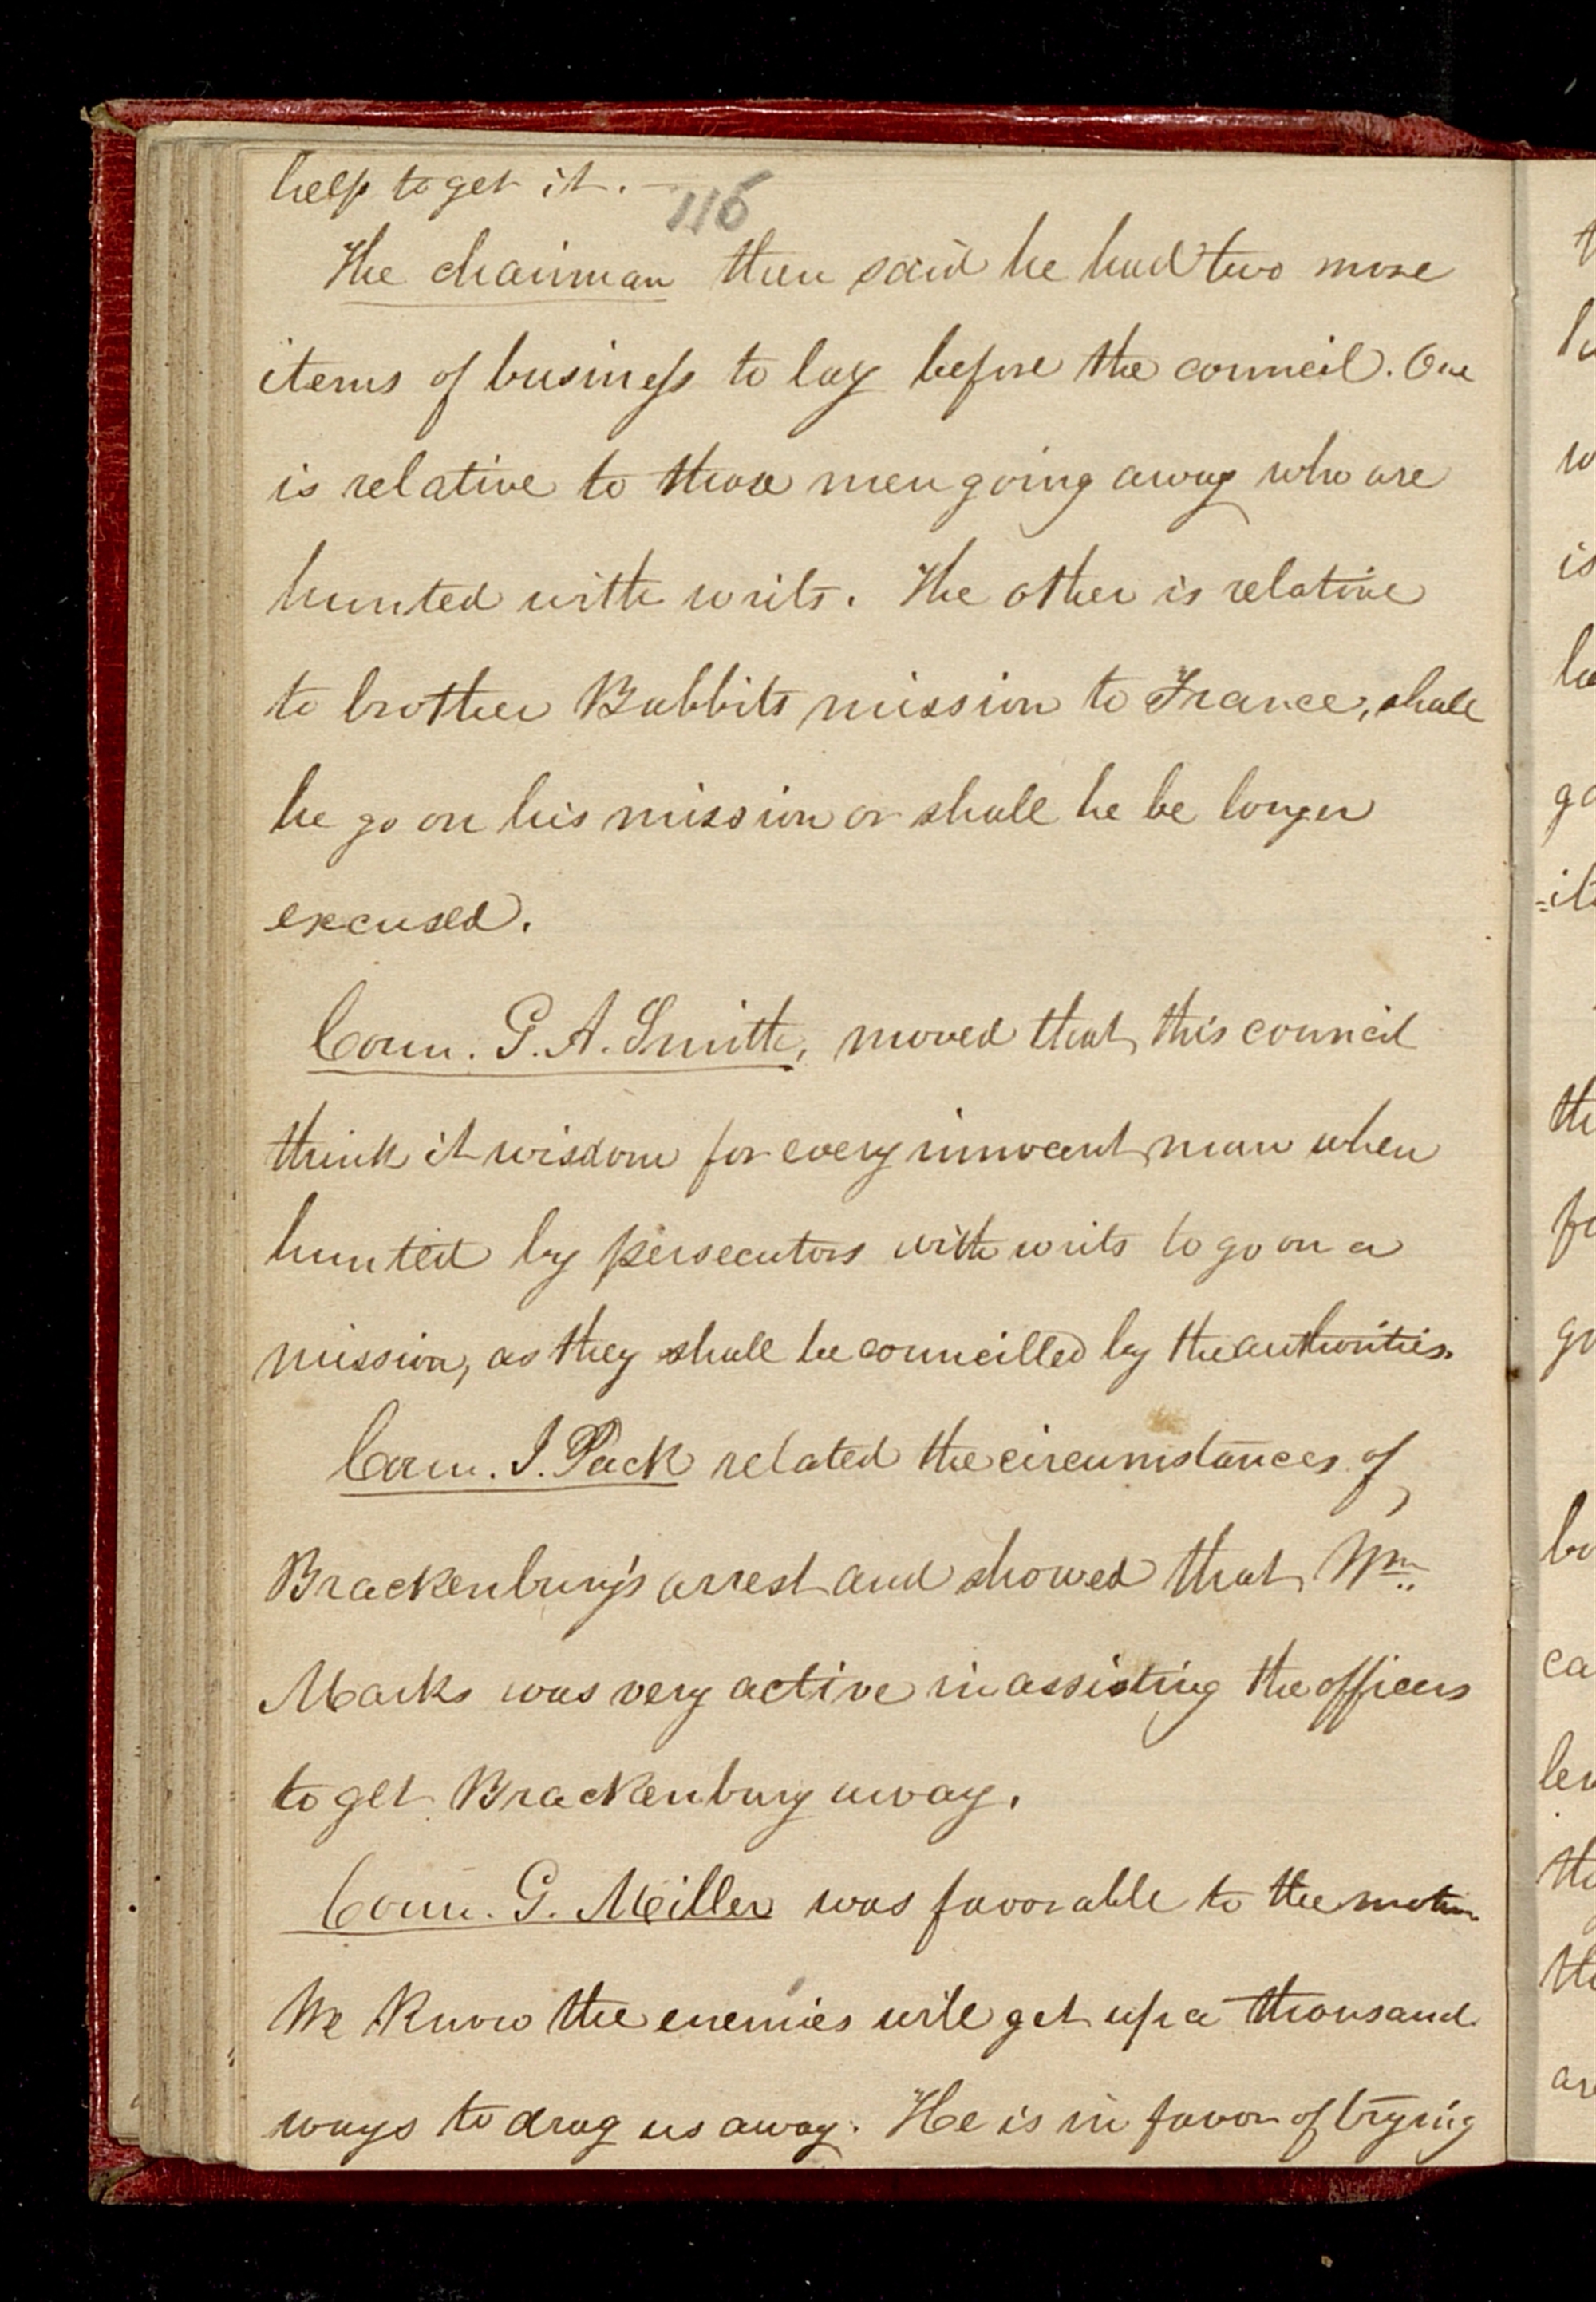 help to get it. —
116
The chairman then said he had two more
items of business to lay before the council. One
is relative to those men going away who are
hunted with writs. The other is relative
to brother Babbits mission to France, shall
he go on his mission or shall he be longer
excused.
Coun. G. A. Smith, moved that this council
think it wisdom for every innocent man when
hunted by persecutors with writs to go on a
mission, as they shall be councilled by the authorities.
Coun. J. Pack related the circumstances of
Brackenbury's arrest and showed that Wm..
Marks was very active in assisting the officers
to get Brackenbury away.
Coun. G. Miller was favorable to the motion
We know the enemies will get up a thousand
ways to drag us away. He is in favor of trying